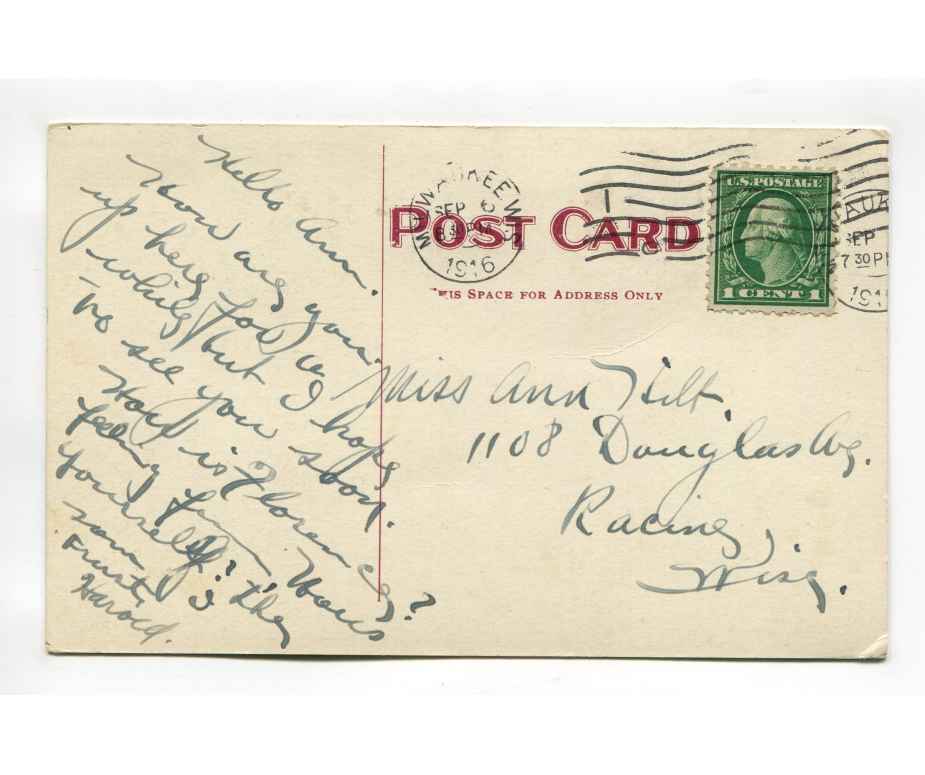 Hello Ann.
How are you.
up here for a
while but I hope
to see you soon.
How is Florence?
feeling fine Hows
yourself? I
the same
I trust
Harold.
MILWAUKEE WIS
SEP 6
6 30 PM
1916
POST CARD
THIS SPACE FOR ADDRESS ONLY
U.S. POSTAGE
1 CENT 1
SEP
7 30 PM
Miss Ann Hilt.
1108 Douglas Av.
Racine,
Wisc.